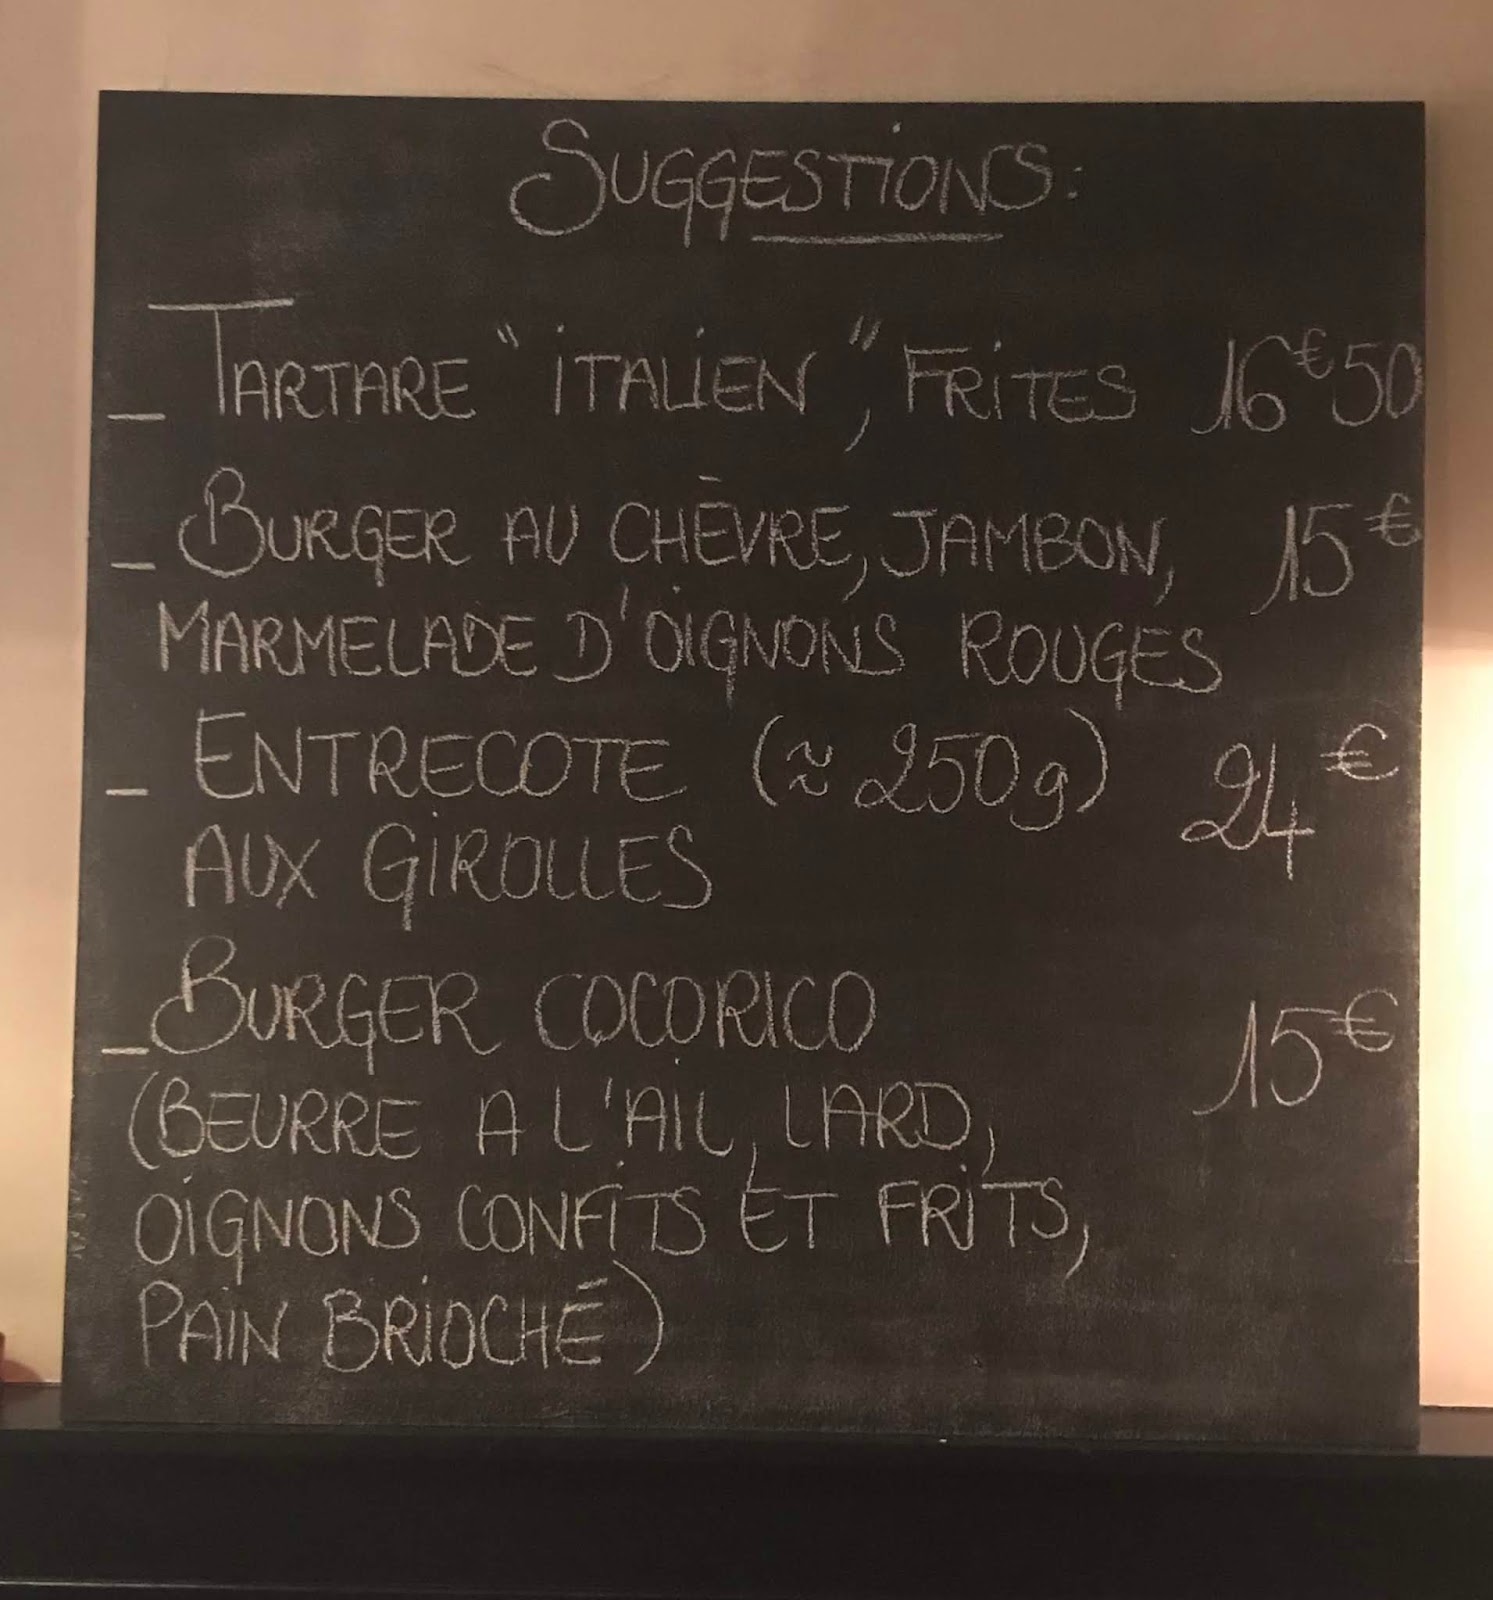 SUGGESTIONS:
_ TARTARE "ITALIEN", FRITES 16€50
_ BURGER AU CHÈVRE, JAMBON, 15€
MARMELADE D'OIGNONS ROUGES
_ ENTRECOTE (≈ 250g) 24€
AUX GIROLLES
_ BURGER COCORICO 15€
(BEURRE A L'AIL, LARD,
OIGNONS CONFITS ET FRITS,
PAIN BRIOCHÉ)